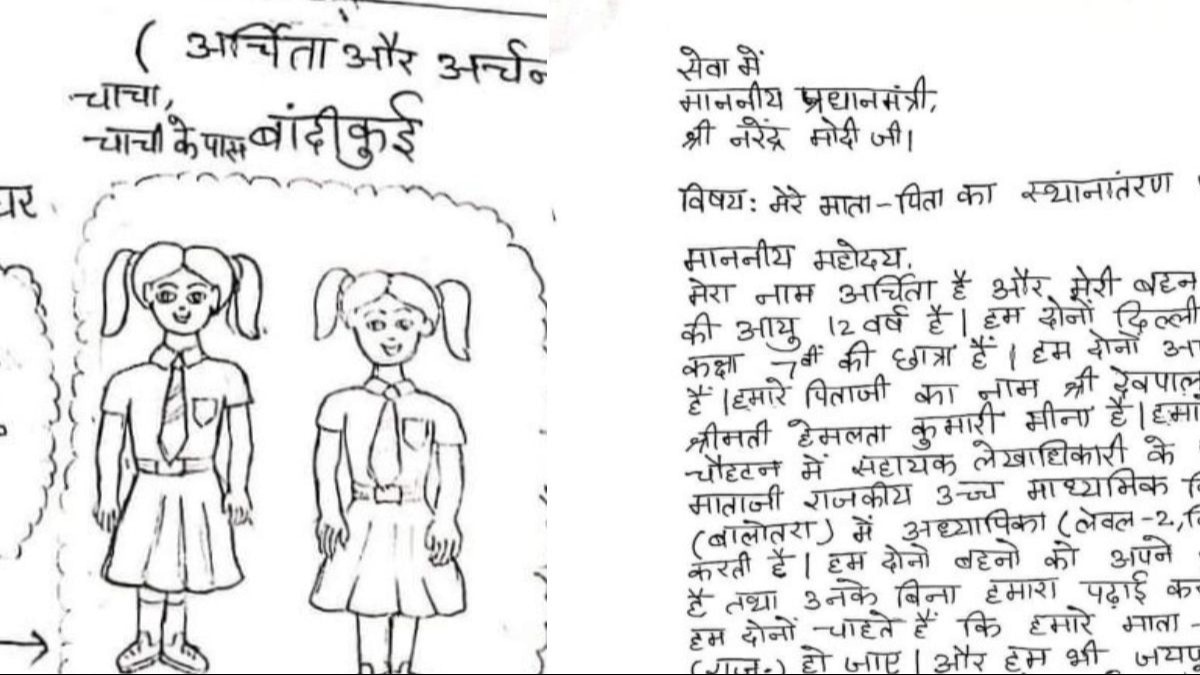 ( अर्चिता और अर्चन
चाचा,
चाची के पास बांदीकुई
घर
सेवा में
माननीय प्रधानमंत्री,
श्री नरेंद्र मोदी जी।
विषय: मेरे माता-पिता का स्थानांतरण
माननीय महोदय,
मेरा नाम अर्चिता है और मेरी बहन
की आयु 12 वर्ष है। हम दोनों दिल्ली
कक्षा 7वीं की छात्रा हैं। हम दोनों
है। हमारे पिताजी का नाम श्री देवपाल
श्रीमती हेमलता कुमारी मीना है। हमा
चौहटन में सहायक लेखाधिकारी के
माताजी राजकीय उच्च माध्यमिक वि
(बालोतरा) में अध्यापिका (लेवल-2,
करती है। हम दोनो बहनो को अपने
है तथा उनके बिना हमारा पढ़ाई कर
हम दोनों चाहते हैं कि हमारे माता-
(राज.) हो जाए। और हम भी जयपु